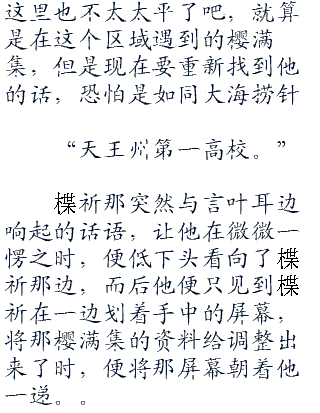 这里也不太太平了吧，就算
是在这个区域遇到的樱满
集，但是现在要重新找到他
的话，恐怕是如同大海捞针
“天王州第一高校。”
楪祈那突然与言叶耳边
响起的话语，让他在微微一
愣之时，便低下头看向了楪
祈那边，而后他便只见到楪
祈在一边划着手中的屏幕，
将那樱满集的资料给调整出
来了时，便将那屏幕朝着他
一递。。